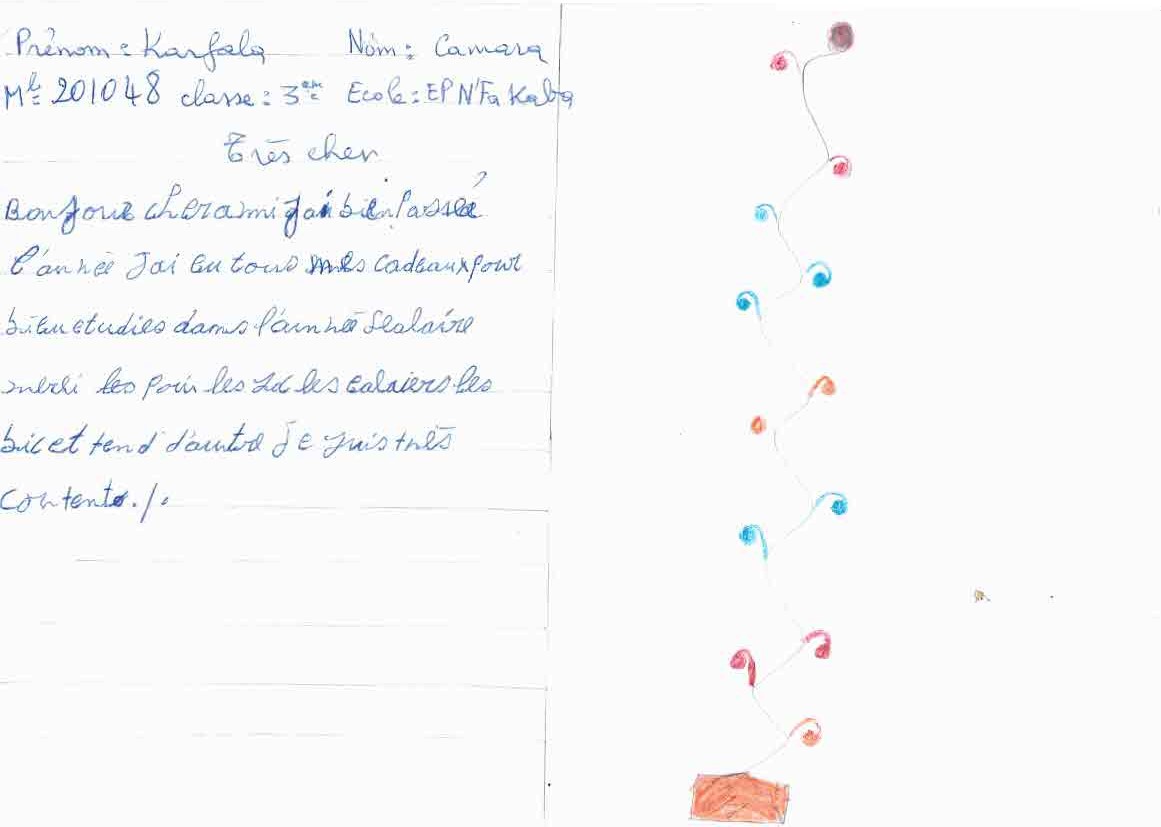 Prénom : Karfala Nom : Camara
Mle 201048 classe : 3eme Ecole : EP N'Fa Kaba
Très cher
Bonjour cher ami j'ai bien passée
l'année Jai eu tous mes cadeaux pour
bien etudies dans l'année scolaire
merci les pour les les caiaiers les
bic et tend d'autre Je suis très
contente./.